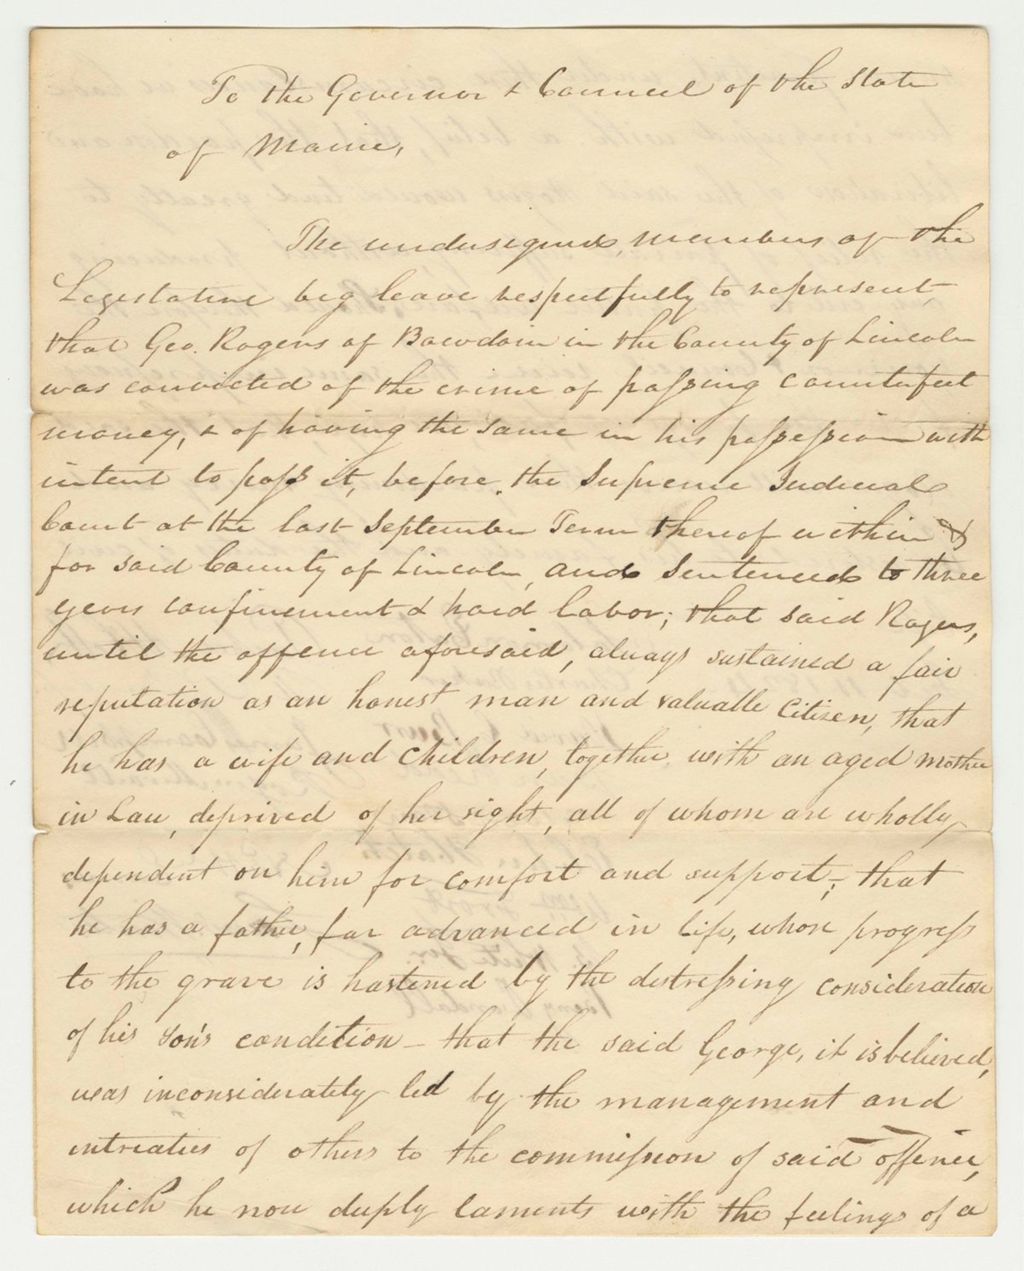 To the Governor & Council of the State
of Maine,
The undersigned, members of the
Legislature beg leave respectfully to represent,
that Geo. Rogers of Bowdoin in the County of Lincoln
was convicted of the crime of passing counterfeit
money, & of having the same in his possession with
intent to pass it, before the Supreme Judicial
Court at the last September Term thereof within &
for said County of Lincoln, and sentenced to three
years confinement & hard labor; that said Rogers,
until the offence aforesaid, always sustained a fair
reputation as an honest man and valuable citizen, that
he has a wife and children, together with an aged mother
in Law, deprived of her sight, all of whom are wholly
dependent on him for comfort and support; that
he has a father, far advanced in life, whose progress
to the grave is hastened by the distressing consideration
of his son's condition – that the said George, it is believed,
was inconsiderately led by the management and
intreaties of others to the commission of said offence,
which he now deeply laments with the feelings of a